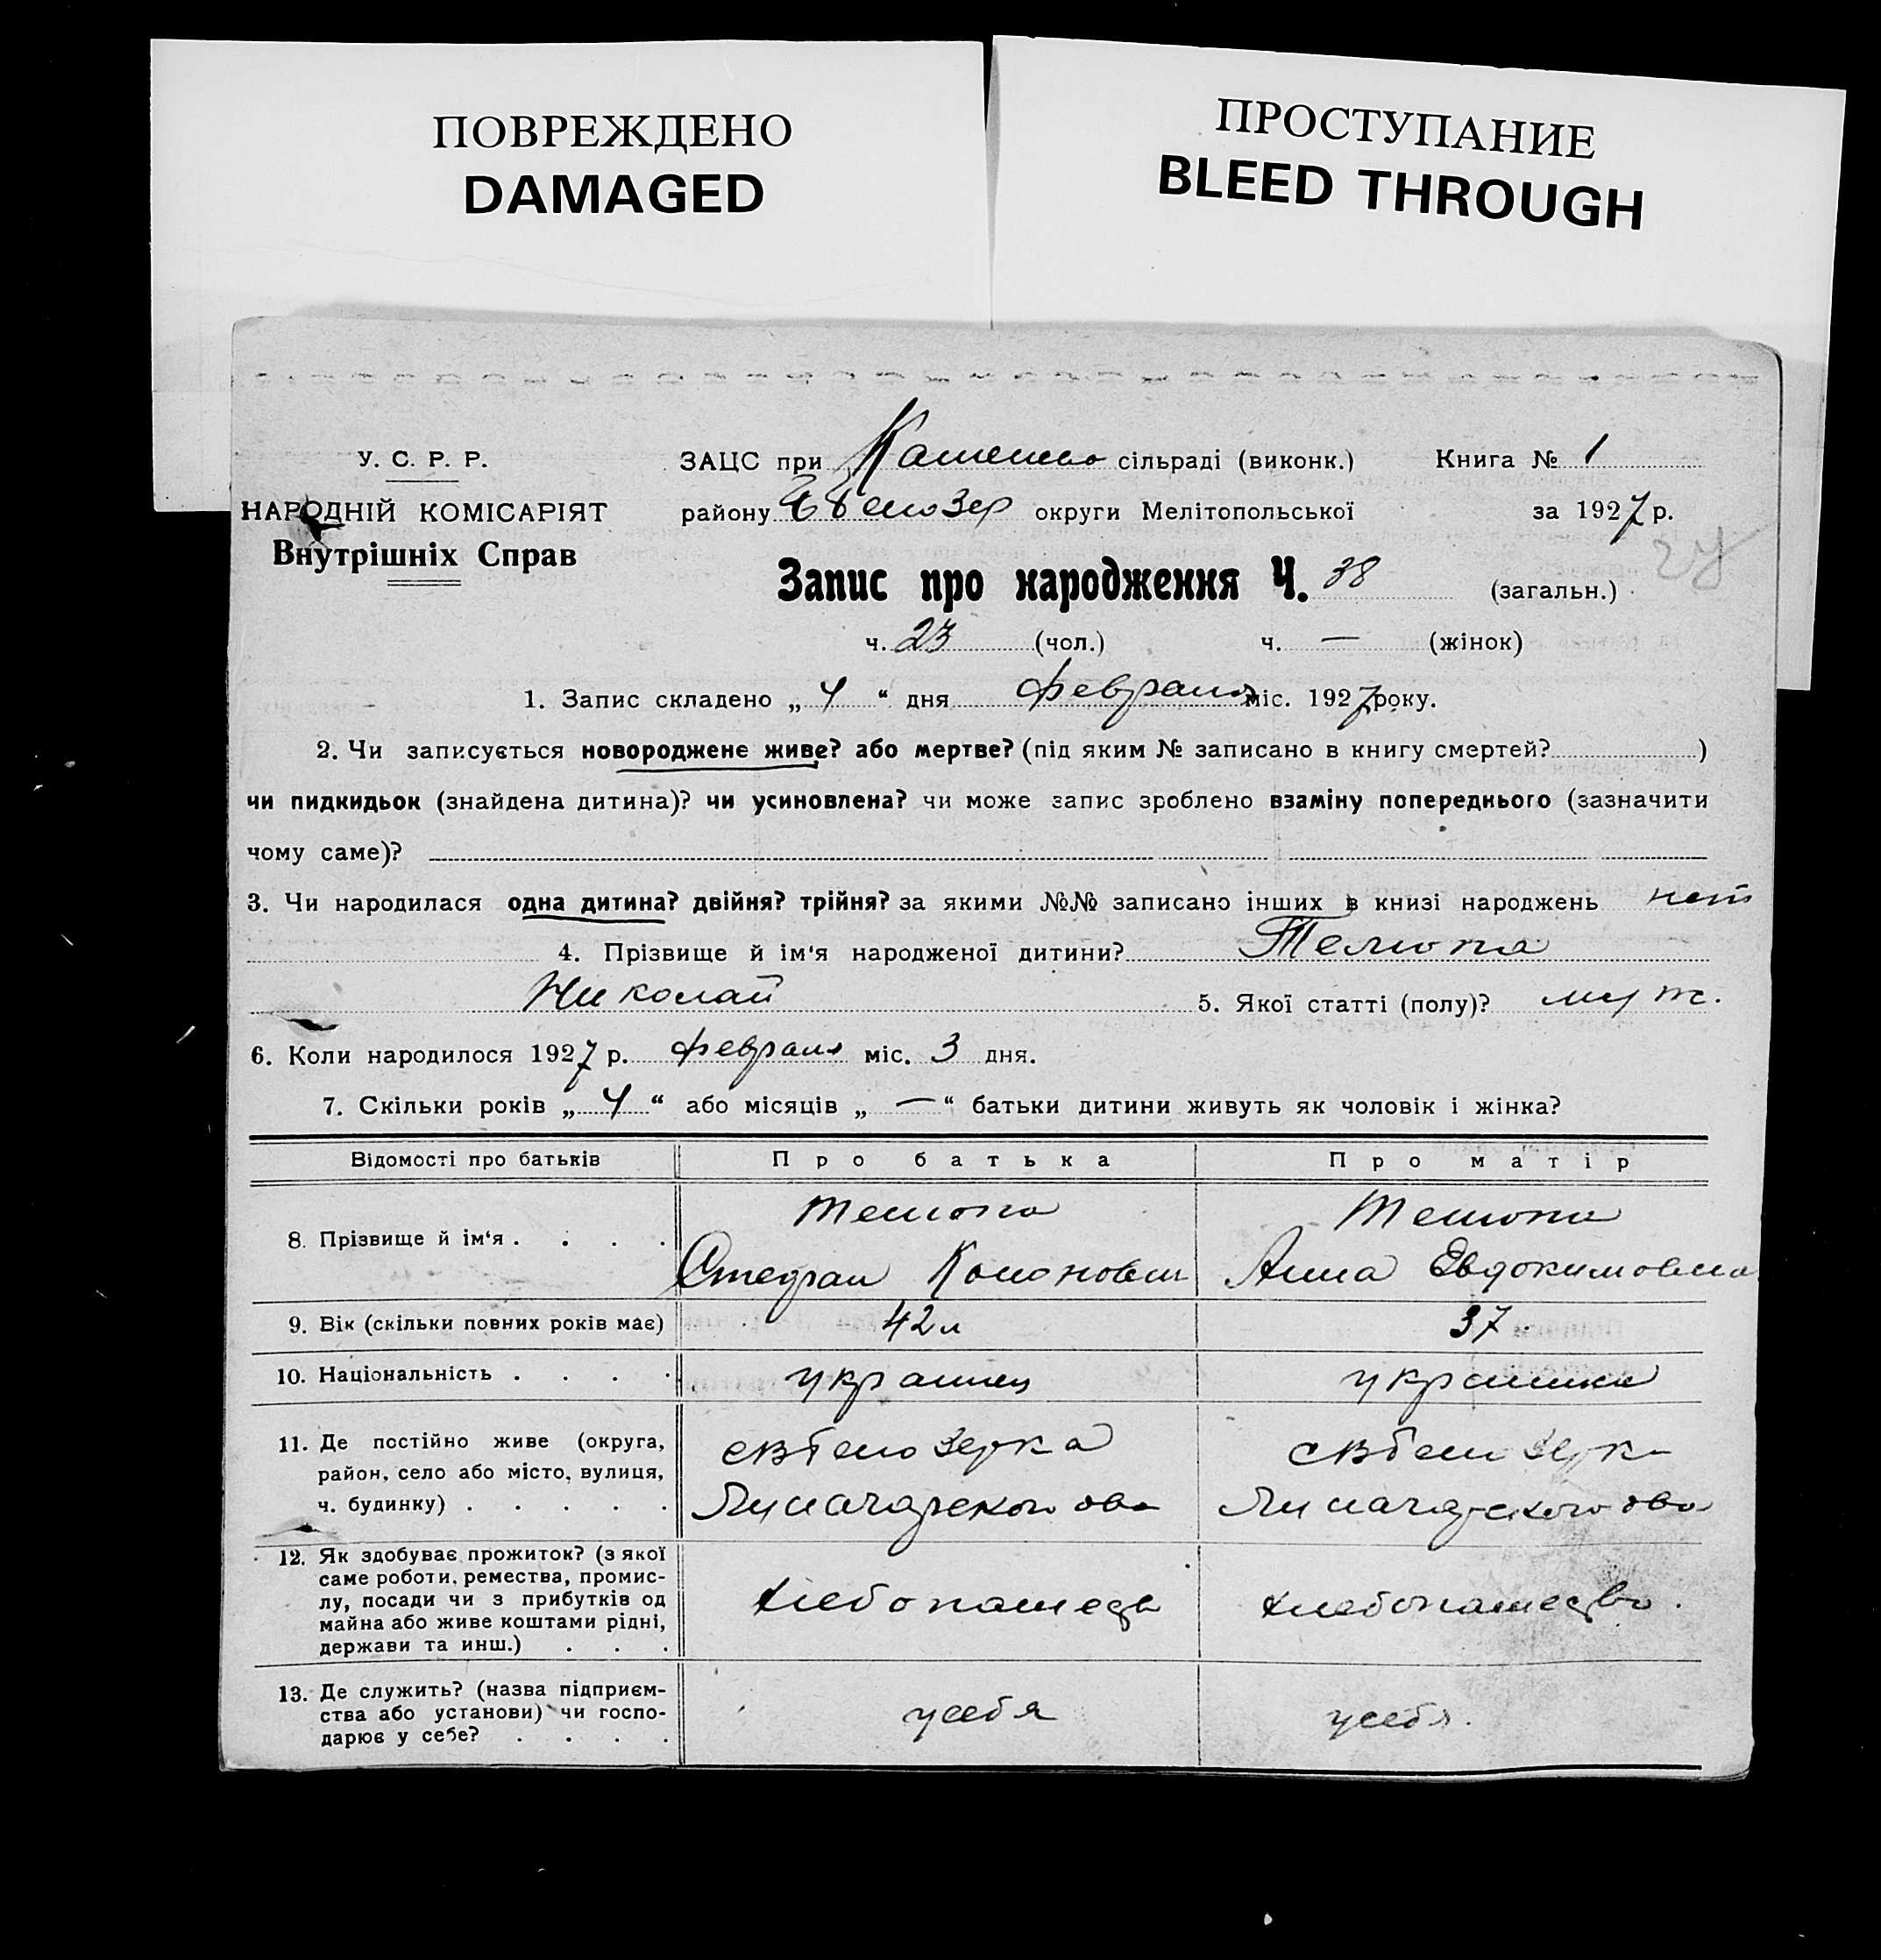 ПОВРЕЖДЕНО
DAMAGED
ПРОСТУПАНИЕ
BLEED THROUGH
У. С. Р. Р.
НАРОДНІЙ КОМІСАРІЯТ
Внутрішніх Справ
ЗАЦС при сільраді (виконк.) Книга № 1
району округи Мелітопольської за 1927 р.
Запис про народження Ч. 38 (загальн.)
ч. 23 (чол.) ч. — (жінок)
1. Запис складено „ 4 “ дня февраля міс. 1927 року.
2. Чи записується новороджене живе? або мертве? (під яким № записано в книгу смертей? )
чи пидкидьок (знайдена дитина)? чи усиновлена? чи може запис зроблено взаміну попереднього (зазначити
чому саме)?
3. Чи народилася одна дитина? двійня? трійня? за якими №№ записано інших в книзі народжень нет
4. Прізвище й ім‘я народженої дитини? Телюпа
Николай 5. Якої статті (полу)? муж.
6. Коли народилося 1927 р. февраля міс. 3 дня.
7. Скільки років „ 4 “ або місяців „ — “ батьки дитини живуть як чоловік і жінка?
Відомості про батьків Про батька Про матір
8. Прізвище й ім‘я . . . . Телюпа Телюпа
Стефан Кононович Анна Евдокимовна
9. Вік (скільки повних років має) 42 л 37.
10. Національність . . . . украинец украинка
11. Де постійно живе (округа,
район, село або місто, вулиця,
ч. будинку) . . . . .
12. Як здобуває прожиток? (з якої
саме роботи, ремества, промис-
лу, посади чи з прибутків од
майна або живе коштами рідні,
держави та инш.) . . .
хлебопашедв хлебопашедво.
13. Де служить? (назва підприєм-
ства або установи) чи госпо-
дарює у себе? . . . .
у себя у себя.